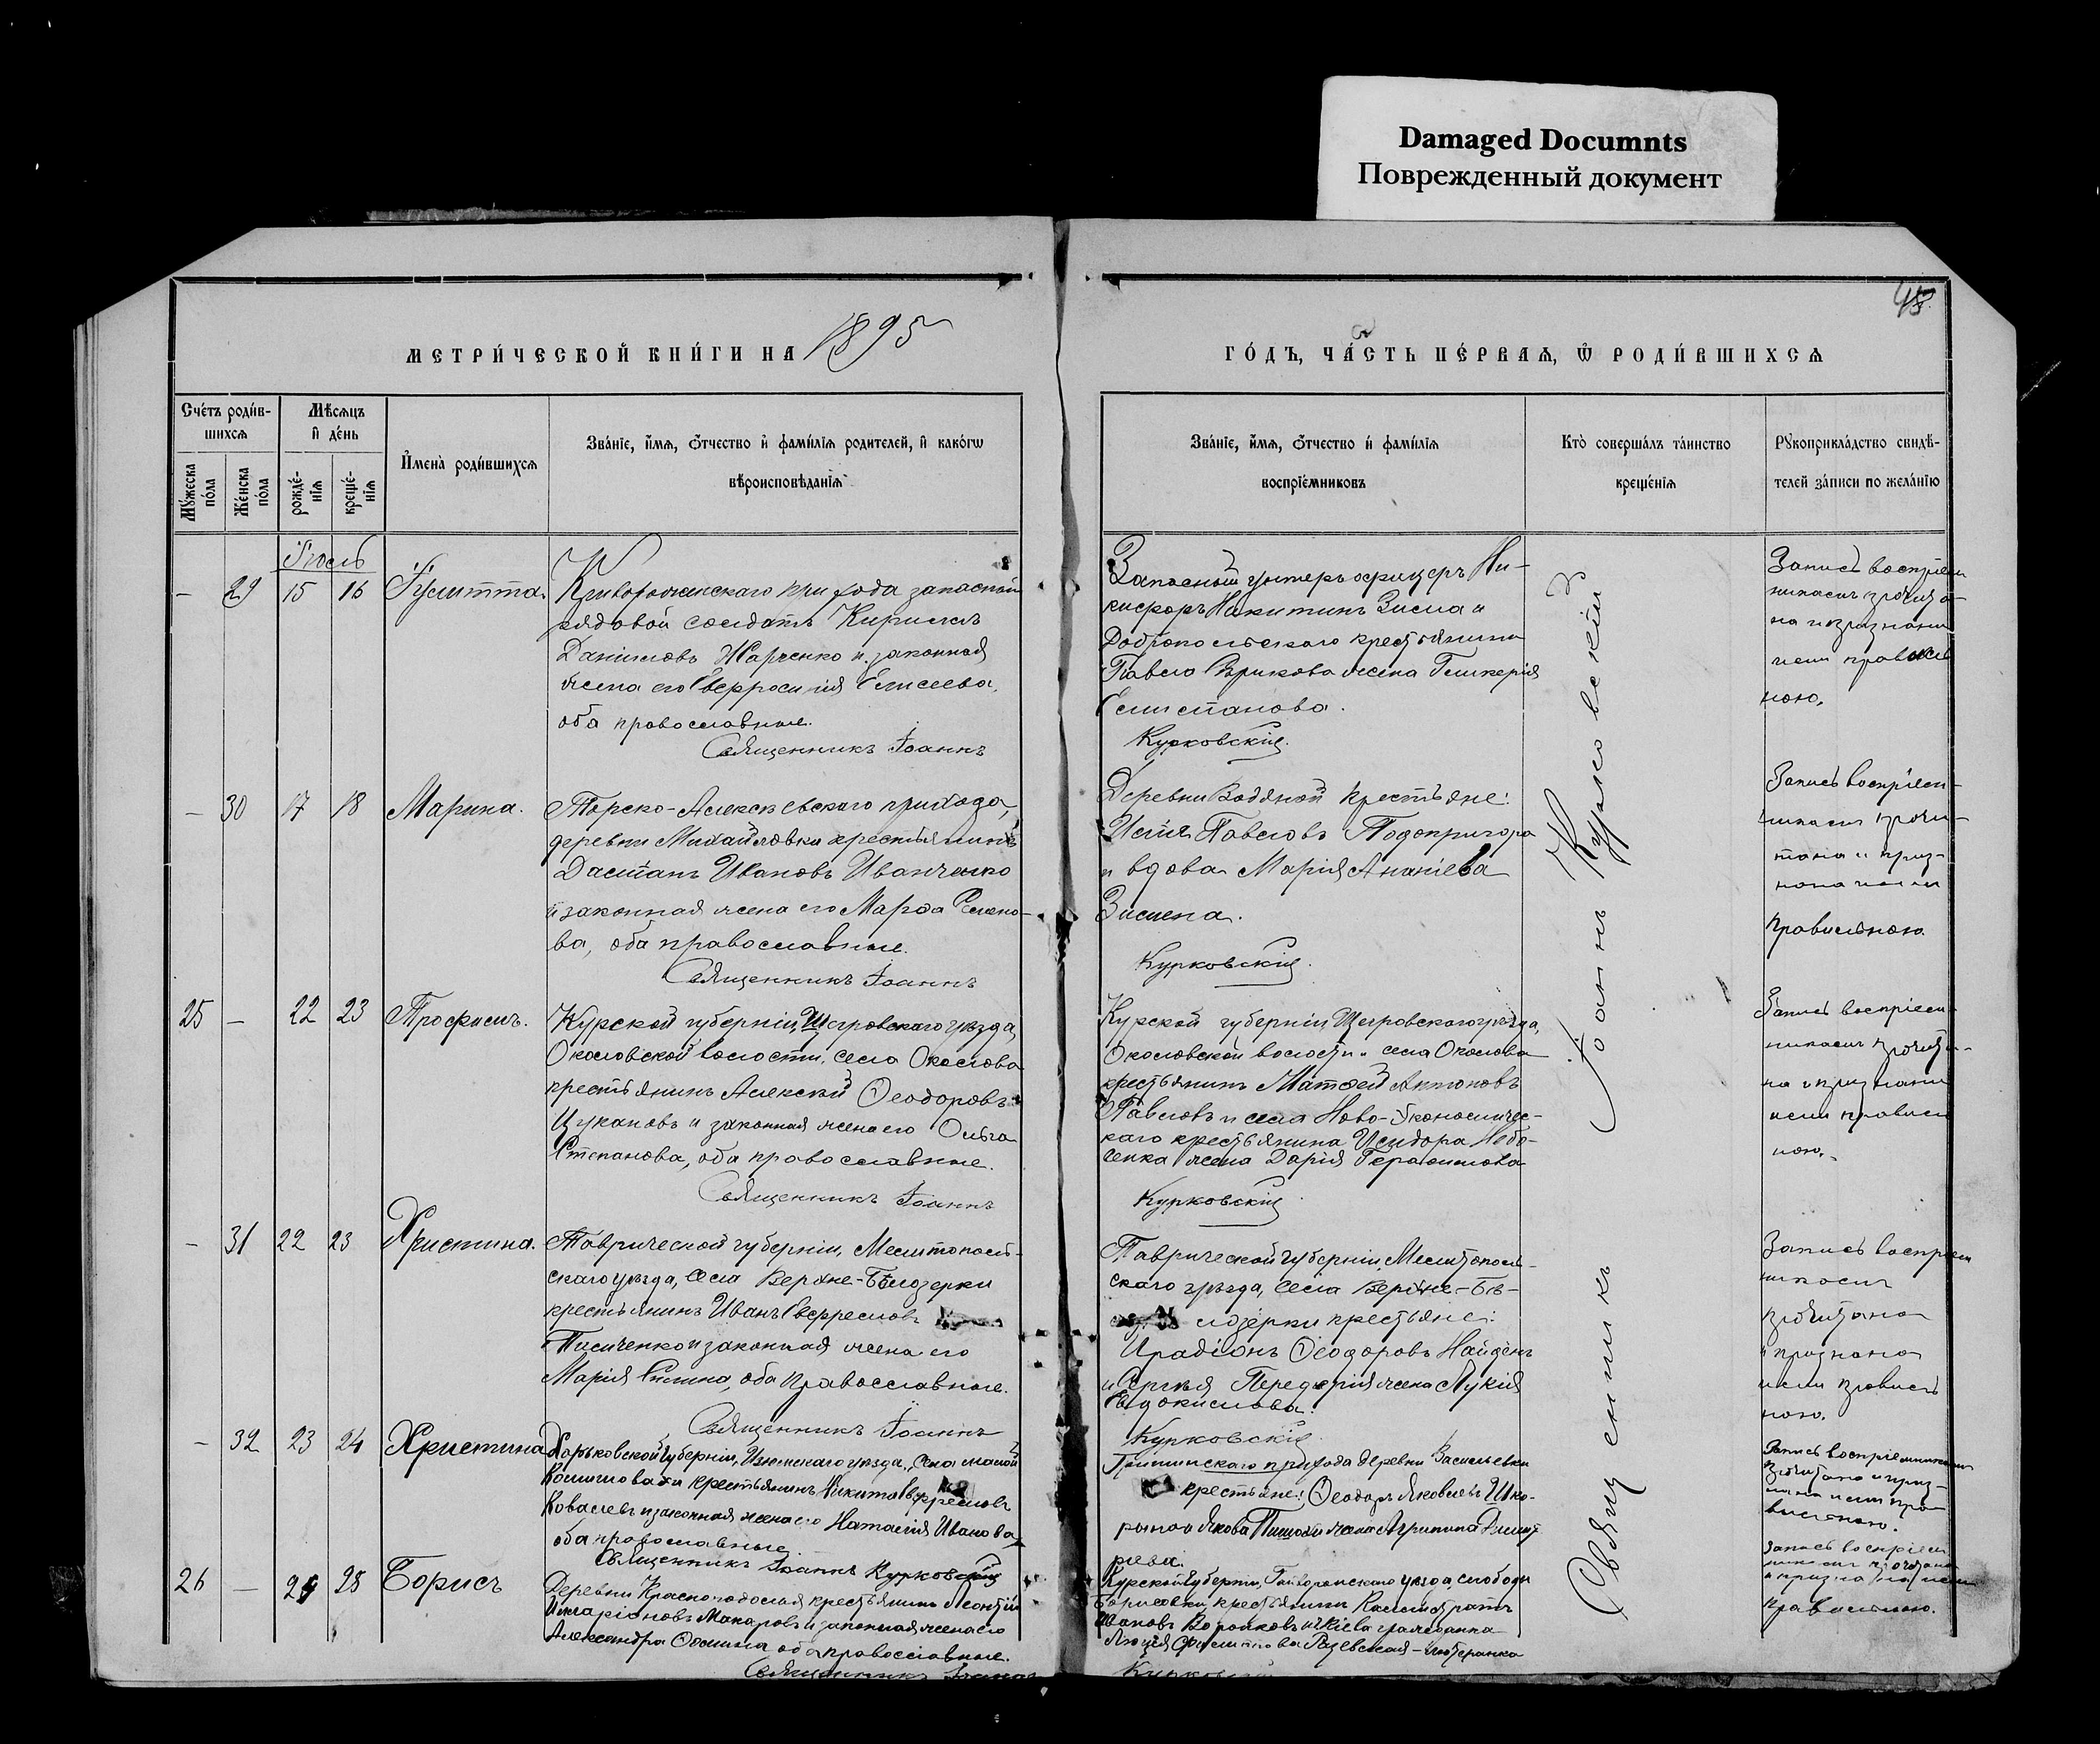 Damaged Documnts
Поврежденный документ
45.
МЕТРИ́ЧЕСКОЙ КНИ́ГИ НА 1895
ГО́ДЪ, ЧА́СТЬ ПЕ́РВАѦ, Ѽ РОДИ́ВШИХСѦ
Сче́тъ роди́в-
шихсѧ
Мꙋ́жеска
по́ла
Же́нска
по́ла
Мѣ́сѧцъ
и҆ де́нь
рожде́-
нїѧ
креще́-
нїѧ
И҆мена̀ роди́вшихсѧ
Зва́нїе, и҆́мѧ, ѻ҆́тчество и҆ фами́лїѧ родителей, и҆ како́гѡ
вѣроисповѣ́данїѧ
Зва́нїе, и҆́мѧ, ѻ҆́тчество и҆ фами́лїѧ
воспрїе́мниковъ
Кто̀ соверша́лъ та́инство
креще́нїѧ
Рꙋкоприкла́дство свидѣ́-
телей за́писи по жела́нїю
Іюль
— 29 15 16 Іулитта.
Криворожанскаго прихода запасный
рядовой солдатъ Кириллъ
Даніиловъ Харченко и законная
жена его Евфросинія Елисеева,
оба православные.
Священникъ Іоаннъ
Запасный унтеръ офицеръ Ни-
кифоръ Никитинъ Зисма и
Добропольскаго крестьянина
Павла жена Гликерія
Курковскій.
Запись воспріем
никами прочита-
на и признана
ими правиль
ною.
— 30 17 18 Марина.
Торско-Алексѣевскаго прихода,
деревни Михайловки крестьянинъ
Ивановъ Иванченко
и законная жена его Марфа Семено-
ва, оба православные.
Священникъ Іоаннъ
Деревни Водяной крестьяне:
Павловъ Подопригора
и вдова Марія Ананіева
Курковскій.
Запись воспріем-
никами прочи-
тана и приз-
нана ими
правильною
25 — 22 23 Трофимъ.
Курской губерніи, Щигровскаго уѣзда,
Околовской волости, села Околова
крестьянинъ Алексѣй Ѳеодоровъ
Цукановъ и законная жена его Ольга
Степанова, оба православные.
Священникъ Іоаннъ
Курской губерніи, Щигровскаго уѣзда,
Околовской волости села Околова
крестьянинъ Матѳей Антоновъ
Павловъ и села Ново-Экономичес-
каго крестьянина Исидора
жена Дарія Герасимова
Курковскій
Запись воспріем-
никами прочита-
на и признана
ими правиль
ною.
— 31 22 23 Христина.
Таврической губерніи, Мелитополь-
скаго уѣзда, села Верхне-Бѣлозерки
крестьянинъ Иванъ Евфремовъ
и законная жена его
Марія оба православные.
Священникъ Іоаннъ
Таврической губерніи, Мелитополь-
скаго уѣзда, села Верхне-Бѣ-
лозерки крестьяне:
Иродіонъ Ѳеодоровъ Найденъ
и Сергѣя жена Лукія
Евдокимова.
Курковскій
Запись воспріем
никами
прочитана
и признана
ими правиль
ною.
— 32 23 24 Христина
Харьковской губерніи, Изюмскаго уѣзда, села малой
Камышевахи крестьянинъ Никита Евфремовъ
Ковалевъ и законная жена его Наталія Иванова,
оба православные.
Священникъ Іоаннъ Курковскій
Гришинскаго прихода деревни Васильевки
крестьяне: Ѳеодоръ Яковлевъ
Якова жена Агрипина Димит
ріева.
Запись воспріемниками
прочитана и приз-
нана ими пра-
вильною.
26 — 24 28 Борисъ
Деревни крестьянинъ Леонтій
Иларіоновъ Макаровъ и законная жена его
Александра Ѳомина оба православные.
Священникъ Іоаннъ
Курской губерніи, Грайворонскаго уѣзда, слободы
Борисовки крестьянинъ Каллистратъ
Ивановъ Воронковъ и г. Кіева гражданка
лютеранка
Курковскій
Запись воспріем
никами прочитана
и признана ими
правильною.
Священникъ Іоаннъ Курковскій